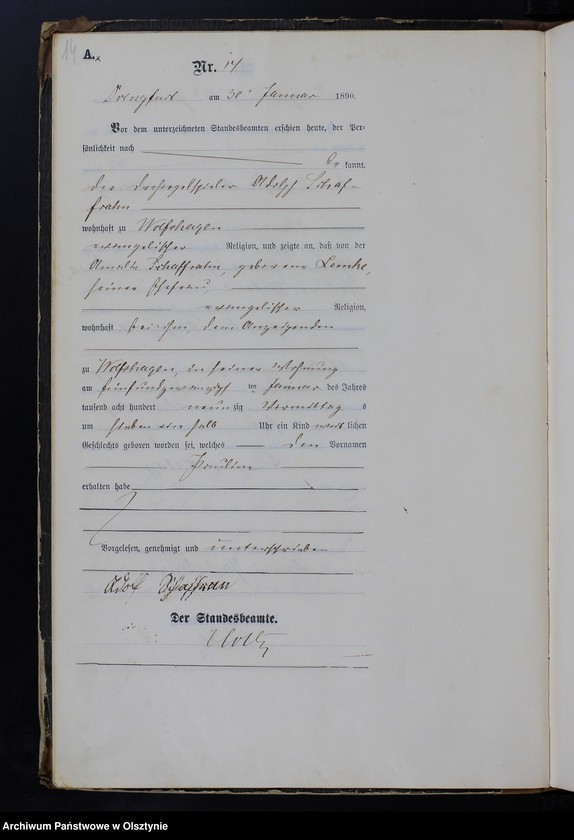 14
A.
Nr. 14
Drengfurt am 30ᵗ Januar 1890.
Vor dem unterzeichneten Standesbeamten erschien heute, der Per-
sönlichkeit nach
be kannt,
der Adolph Schaf-
fran
wohnhaft zu Wolfshagen
evangelischer Religion, und zeigte an, daß von der
Amalie Schaffran, geborene Lemke,
seiner Ehefrau,
evangelischer Religion,
wohnhaft bei ihm, dem Anzeigenden
zu Wolfshagen, in seiner Wohnung
am fünfundzwanzigsten Januar des Jahres
tausend acht hundert neun zig Vormittag s
um sieben ein halb Uhr ein Kind weib lichen
Geschlechts geboren worden sei, welches den Vornamen
Pauline
erhalten habe
Vorgelesen, genehmigt und unterschrieben
Adolf Schaffran
Der Standesbeamte.
Archiwum Państwowe w Olsztynie